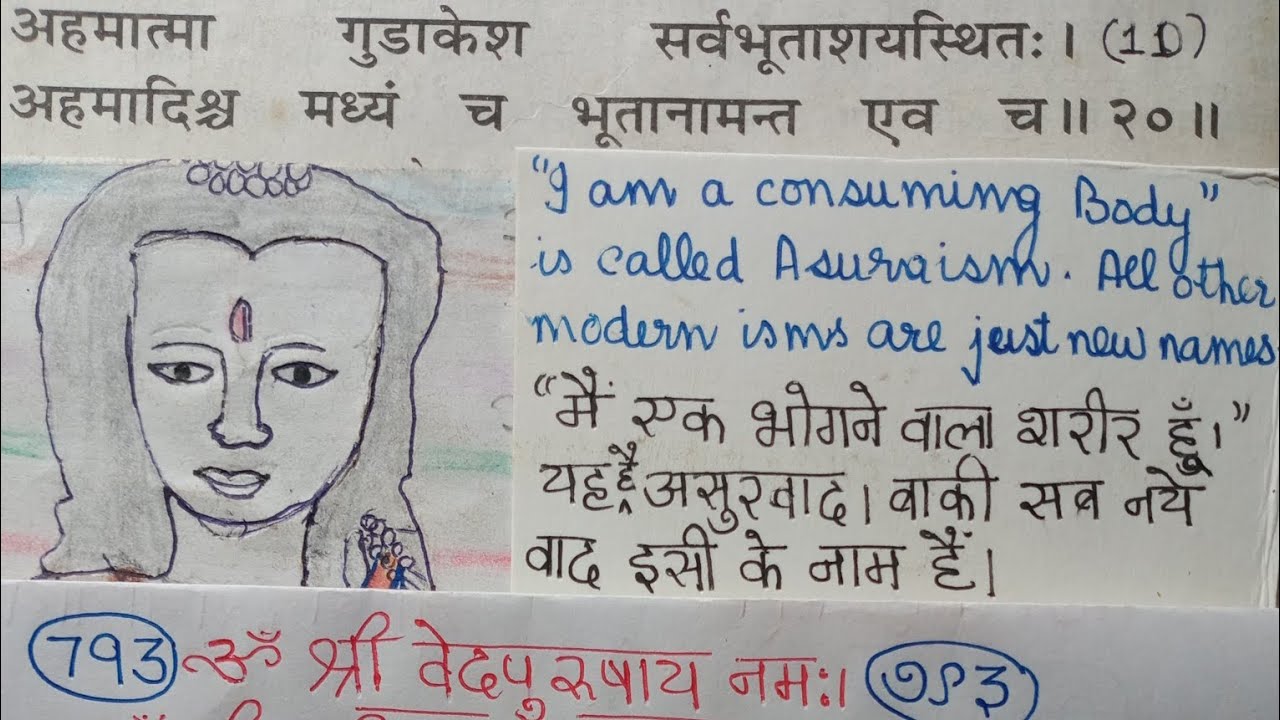 अहमात्मा गुडाकेश सर्वभूताशयस्थितः। (1D)
अहमादिश्च मध्यं च भूतानामन्त एव च॥ २०॥
"I am a consuming Body"
is called Asuraism. All other
modern isms are just new names
"मैं एक भोगने वाला शरीर हूँ।"
यह है असुरवाद। बाकी सब नये
वाद इसी के नाम हैं।
793 ॐ श्री वेदपुरुषाय नमः। ७९३